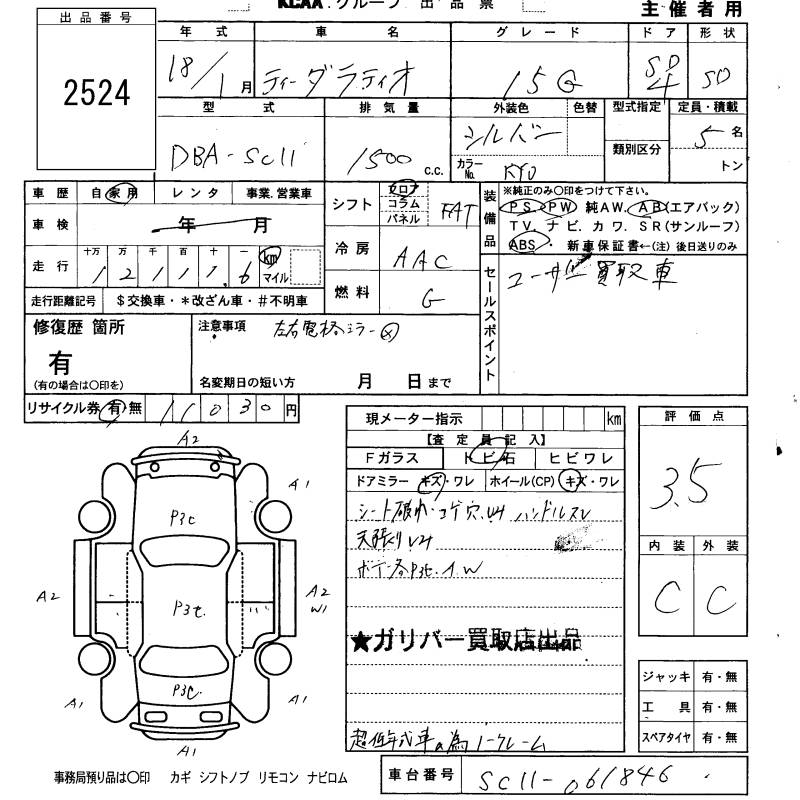 KCAA グループ 出品票
主催者用
出品番号
2524
年式 車名 グレード ドア 形状
18/1月 ティーダラティオ 15G SD 4 SD
型式 排気量 外装色 色替 型式指定 定員・積載
DBA-SC11 1500 c.c. シルバー カラーNo. KY0 類別区分 5名
トン
車歴 自家用 レンタ 事業.営業車
車検 年 月
走行 十万 万 千 百 十 一 km マイル
1 2 1 1 1.6
走行距離記号 $交換車・*改ざん車・#不明車
シフト フロア コラム パネル FAT
冷房 AAC
燃料 G
装備品 ※純正のみ〇印をつけて下さい。
PS PW 純AW. AB(エアバック)
TV. ナビ. カワ. SR(サンルーフ)
ABS・新車保証書←(注)後日送りのみ
セールスポイント
ユーザー買取車
修復歴 箇所
有
(有の場合は〇印を)
注意事項 左右電格ミラー
名変期日の短い方 月 日まで
リサイクル券 有・無 11030円
現メーター指示 km
【査定員記入】
Fガラス トビ石 ヒビワレ
ドアミラー キズ・ワレ ホイール(CP) キズ・ワレ
シート破れ・コゲ穴.
ハンドルスレ
天張り
ボデー各P3t.A.W
★ガリバー買取店出品
超低年式車の為ノークレーム
評価点
3.5
内装 外装
C C
ジャッキ 有・無
工具 有・無
スペアタイヤ 有・無
A2
A1
P3t
A2 P3t. A2
W1
P3t.
A1 A1
A1
事務局預り品は〇印 カギ シフトノブ リモコン ナビロム
車台番号 SC11-061846